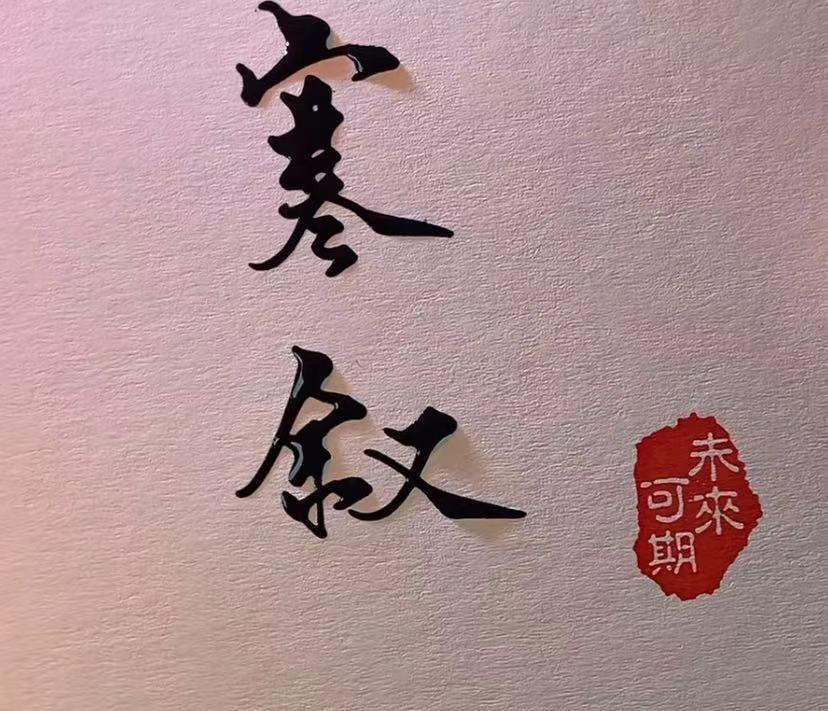 寒
叙
未來
可期